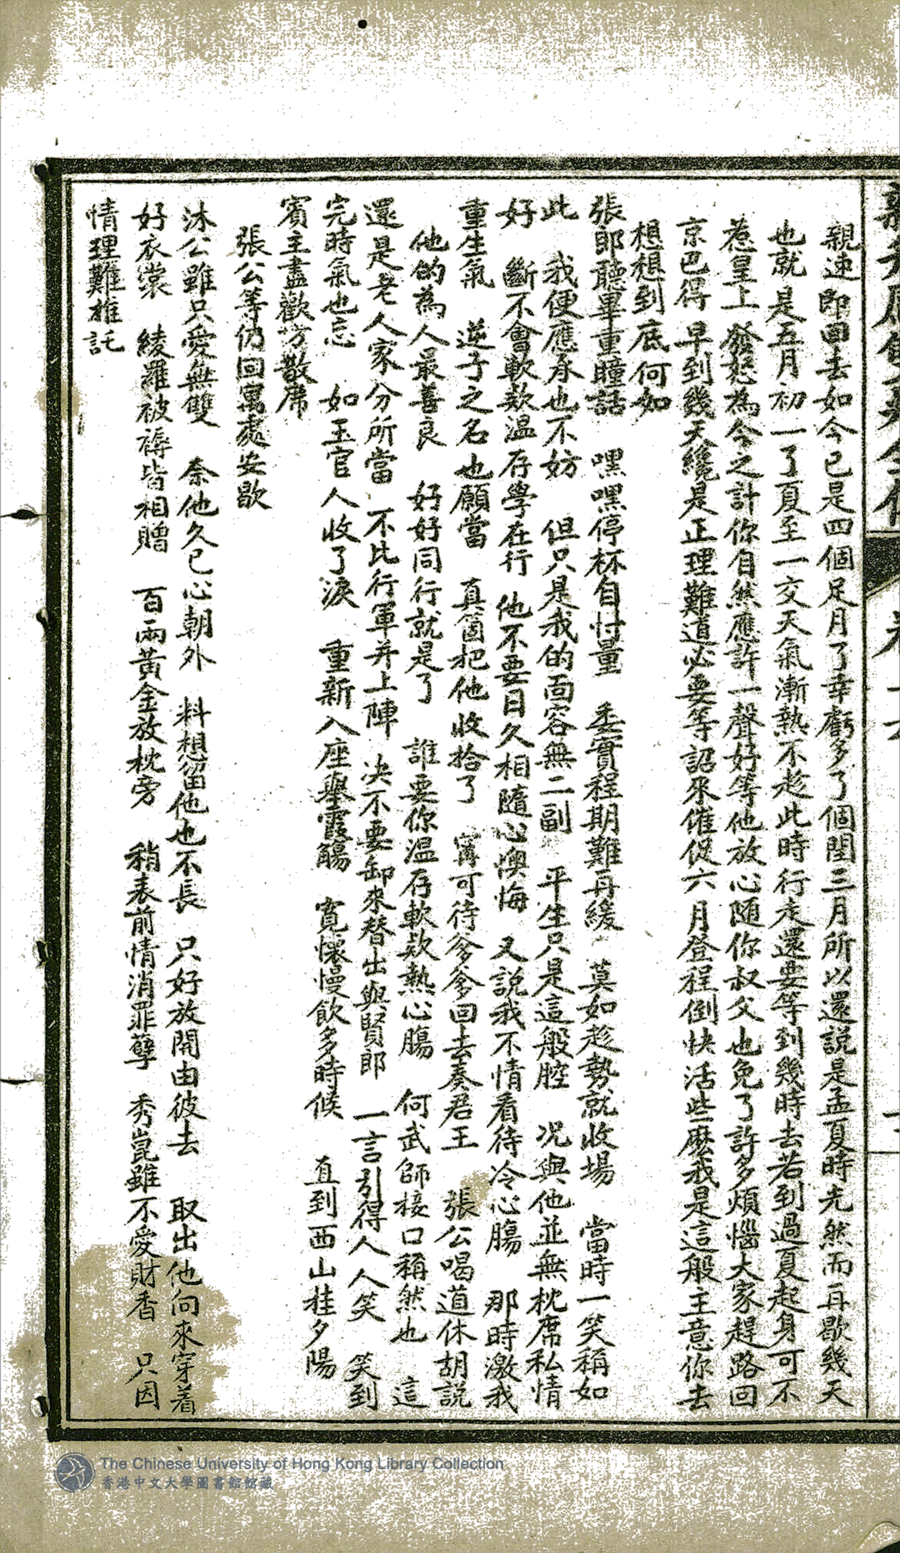 親速即回去如今已是四個足月了幸虧多了個閏三月所以還說是孟夏時光然而再歇幾天
也就是五月初一了夏至一交天氣漸熱不趁此時行走還要等到幾時去若到過夏起身可不
惹皇上發怒為今之計你自然應許一聲好等他放心随你叔父也免了許多煩惱大家趕路回
京巴得早到幾天纔是正理難道必要等詔來催促六月登程倒快活些麽我是這般主意你去
想想到底何如
張郎聽畢重瞳話 嘿嘿停杯自忖量 丞實程期難再緩 莫如趁勢就收場 當時一笑稱如
此 我便應承也不妨 但只是我的面容無二副 平生只是這般腔 况與他並無枕席私情
好 斷不會軟欵温存學在行 他不要日久相隨心懊悔 又說我不情看待冷心腸 那時激我
重生氣 逆子之名也願當 真箇把他收拾了 寗可待爹爹回去奏君王 張公喝道休胡說
他的為人最善良 好好同行就是了 誰要你温存軟欵熱心腸 何武師接口稱然也 這
還是老人家分所當 不比行軍并上陣 决不要卸來替出與賢郎 一言引得人人笑 笑到
完時氣也忘 如玉官人收了淚 重新入座舉霞觴 寛懷慢飲多時候 直到西山挂夕陽
賓主盡歡方散席
張公等仍回寓處安歇
沐公雖只愛無雙 奈他久已心朝外 料想留他也不長 只好放開由彼去 取出他向來穿着
好衣裳 綾羅被褥皆相贈 百兩黃金放枕旁 稍表前情消罪孽 秀崑雖不愛財香 只因
情理難推託
The Chinese University of Hong Kong Library Collection
香港中文大學圖書館館藏